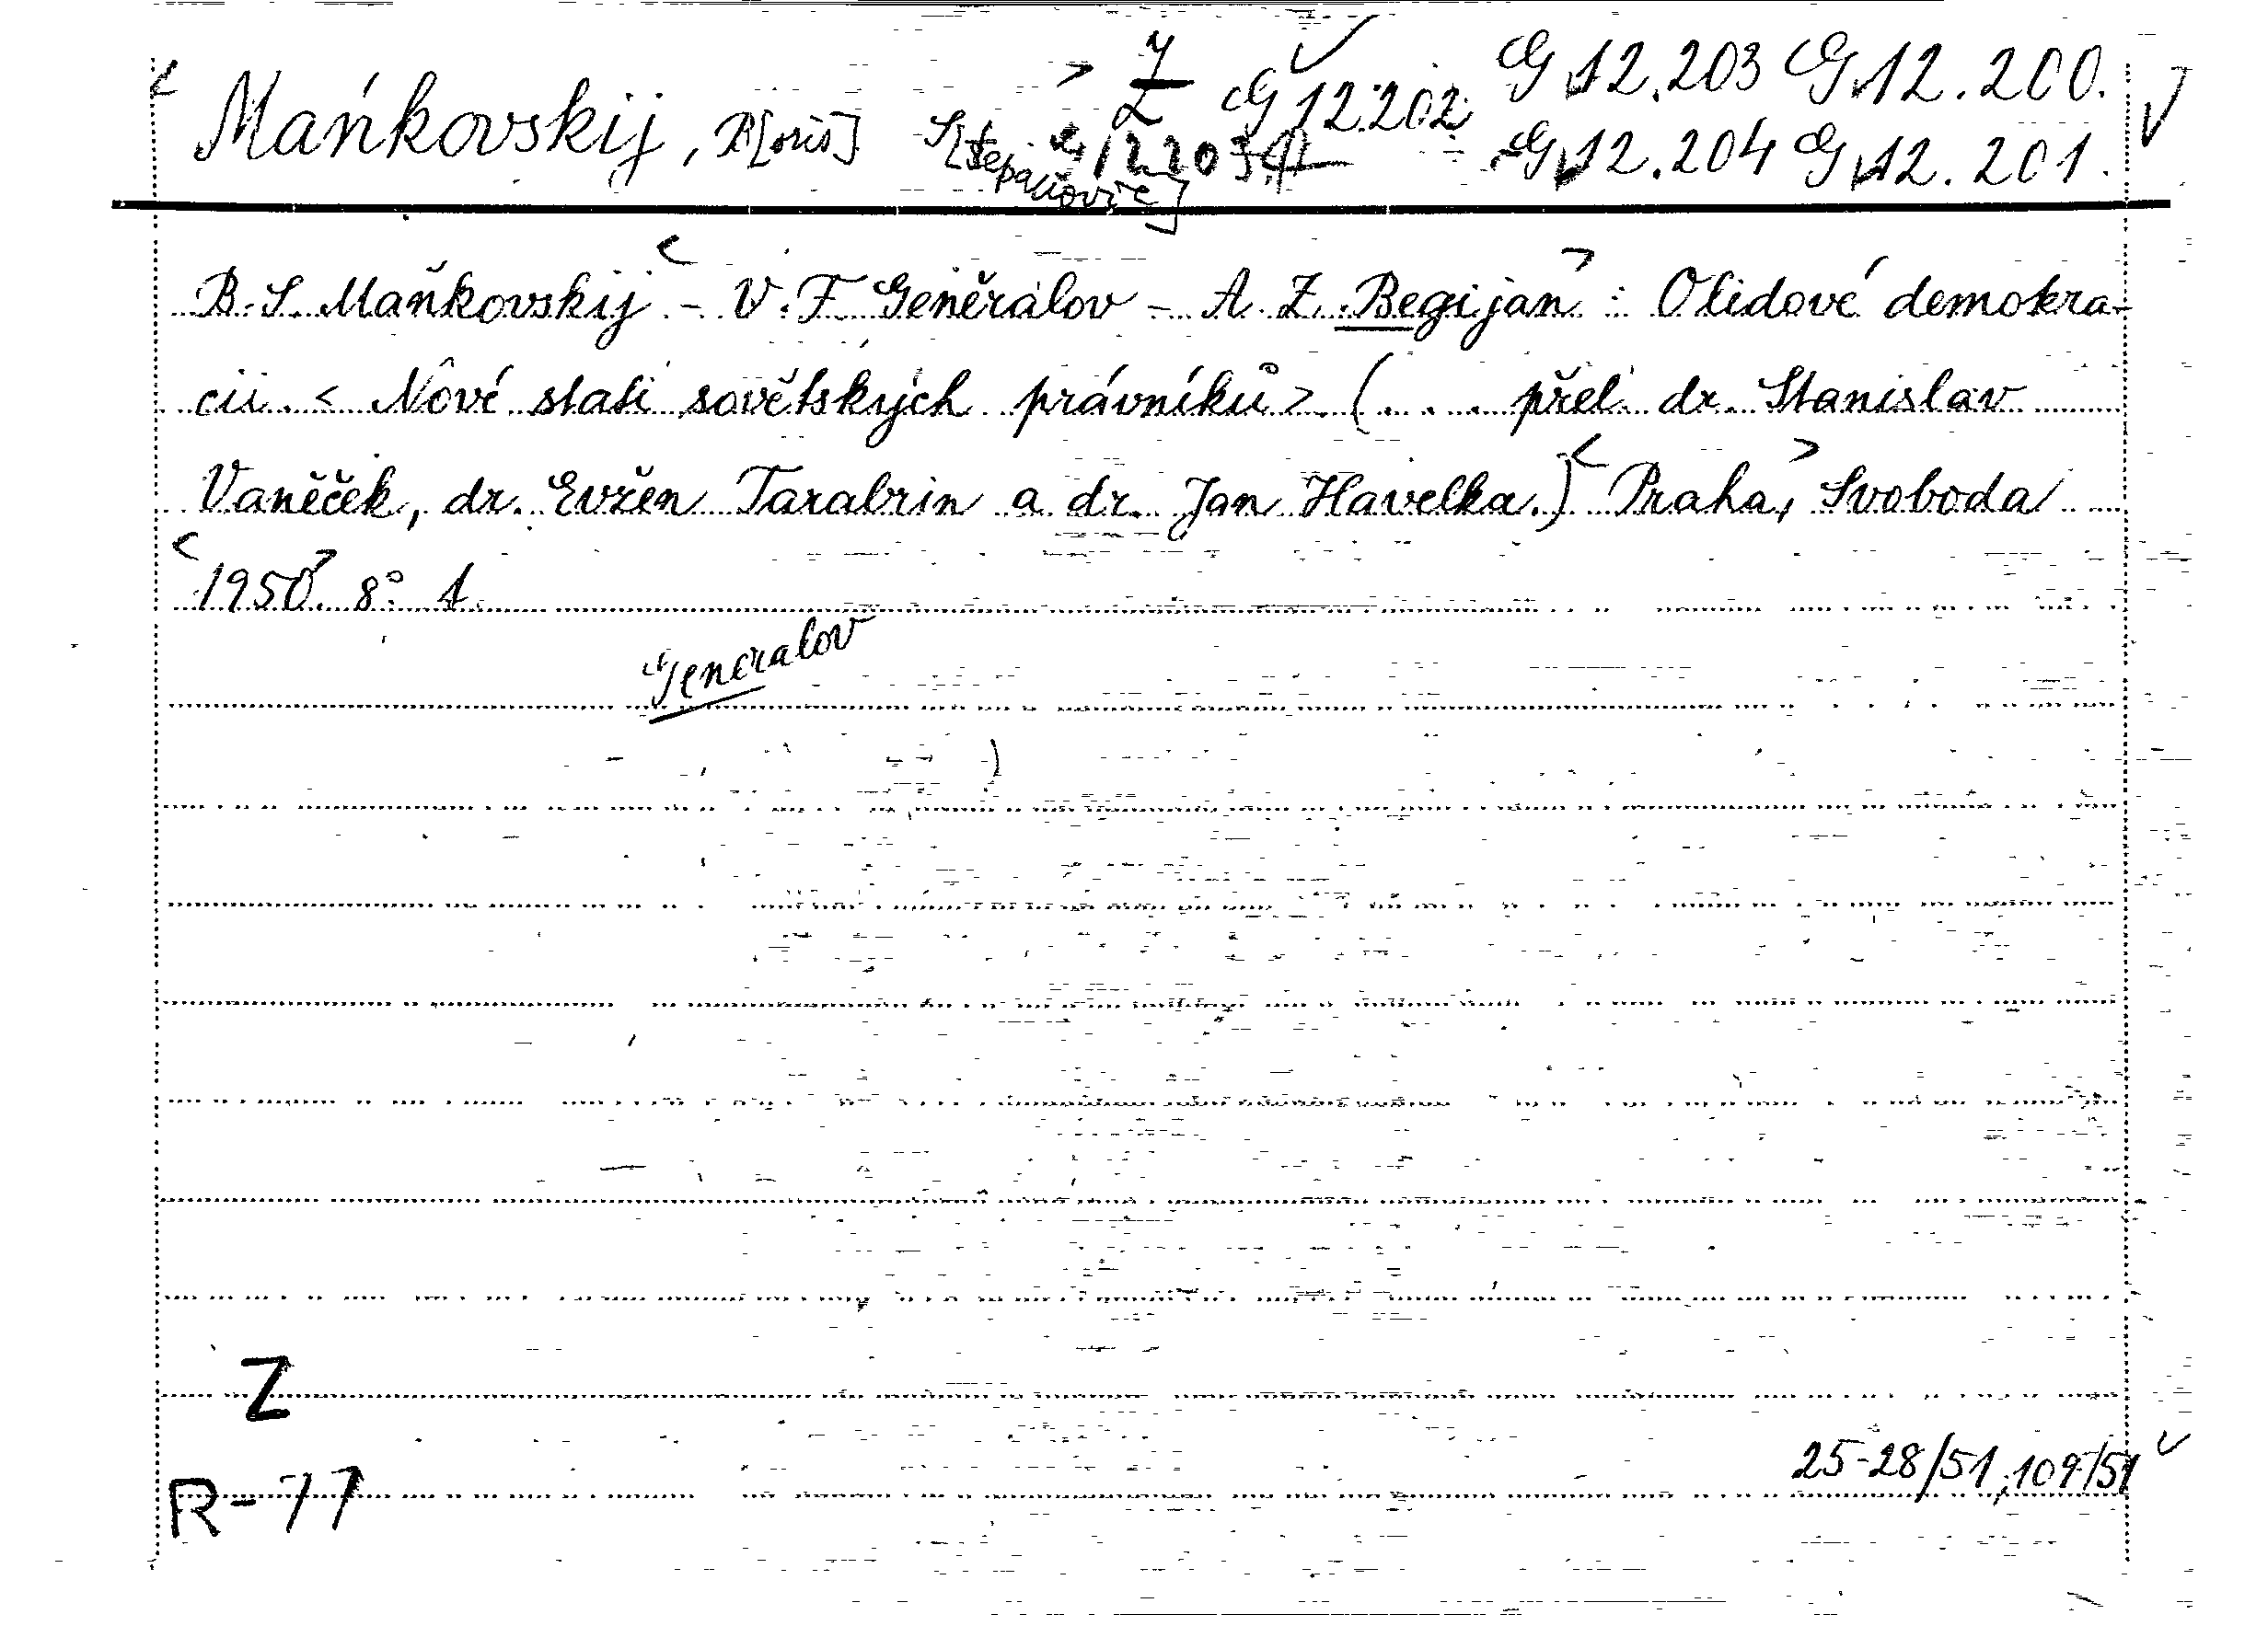 Z G 12.202 G 12.203 G 12.200.
Maňkovskij, B[oris] S[těpanovič] G 12.204 G 12.201.
B. S. Maňkovskij - V. F. Geněrálov - A. Z. Begijan : O lidové demokra-
cii. < Nové stati sovětských právníků >. (... přel. dr. Stanislav
Vaněček, dr. Evžen Tarabrin a dr. Jan Havelka.) Praha, Svoboda
1950. 8° 1.
Generalov
Z
R-77
25-28/51, 109/51